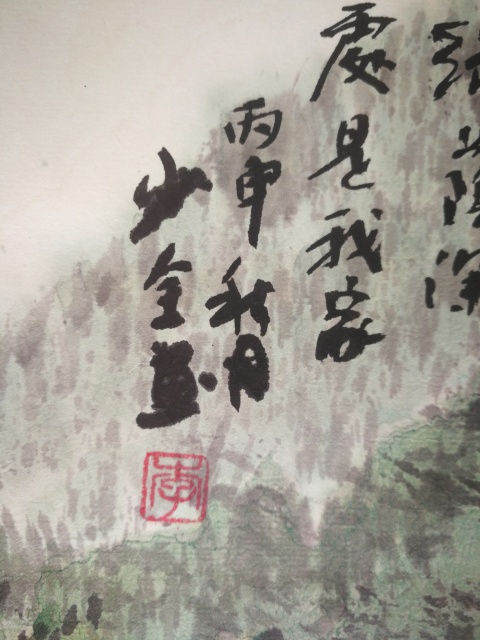 陰深
處是我家
丙申秋月
少全畫
李